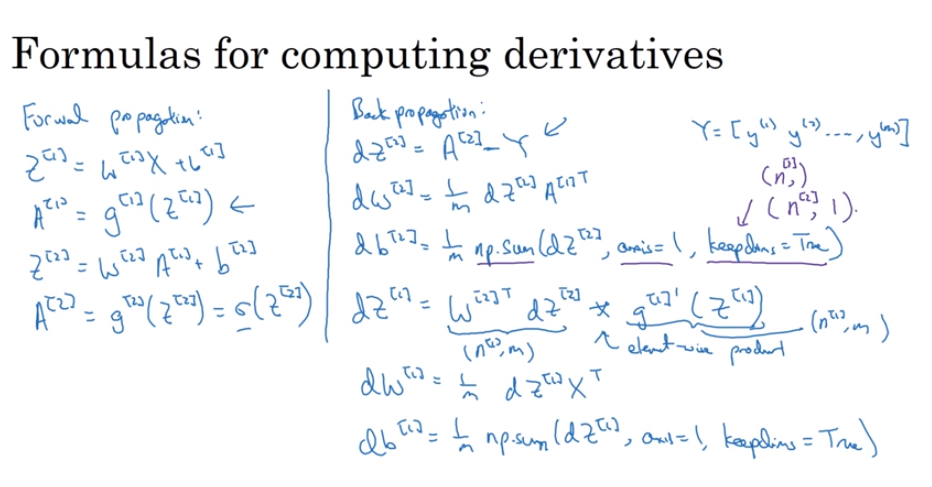 Formulas for computing derivatives
Forwal propagation:
Z^[1] = W^[1]X + b^[1]
A^[1] = g^[1](Z^[1]) ←
Z^[2] = W^[2] A^[1] + b^[2]
A^[2] = g^[2](Z^[2]) = σ(Z^[2])
Back propagation:
dZ^[2] = A^[2] - Y ↙
dW^[2] = 1/m dZ^[2] A^[1]T
db^[2] = 1/m np.sum(dZ^[2], axis=1, keepdims=True)
dZ^[1] = W^[2]T dZ^[2] * g^[1]'(Z^[1])
(n^[1], m) ↖ element-wise product (n^[1], m)
dW^[1] = 1/m dZ^[1] X^T
db^[1] = 1/m np.sum(dZ^[1], axis=1, keepdims=True)
Y = [y^(1) y^(2) ..., y^(m)]
(n^[2],)
↙ (n^[2], 1).